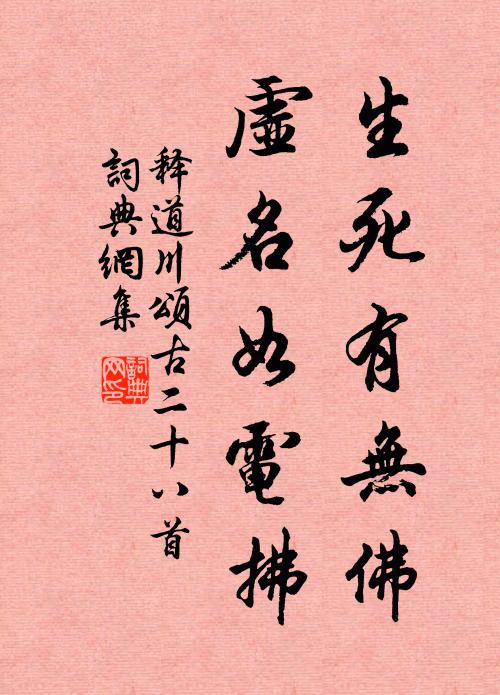 生死有無佛
虛名如電拂
释道川頌古二十八首
詞典網集
詞典網印